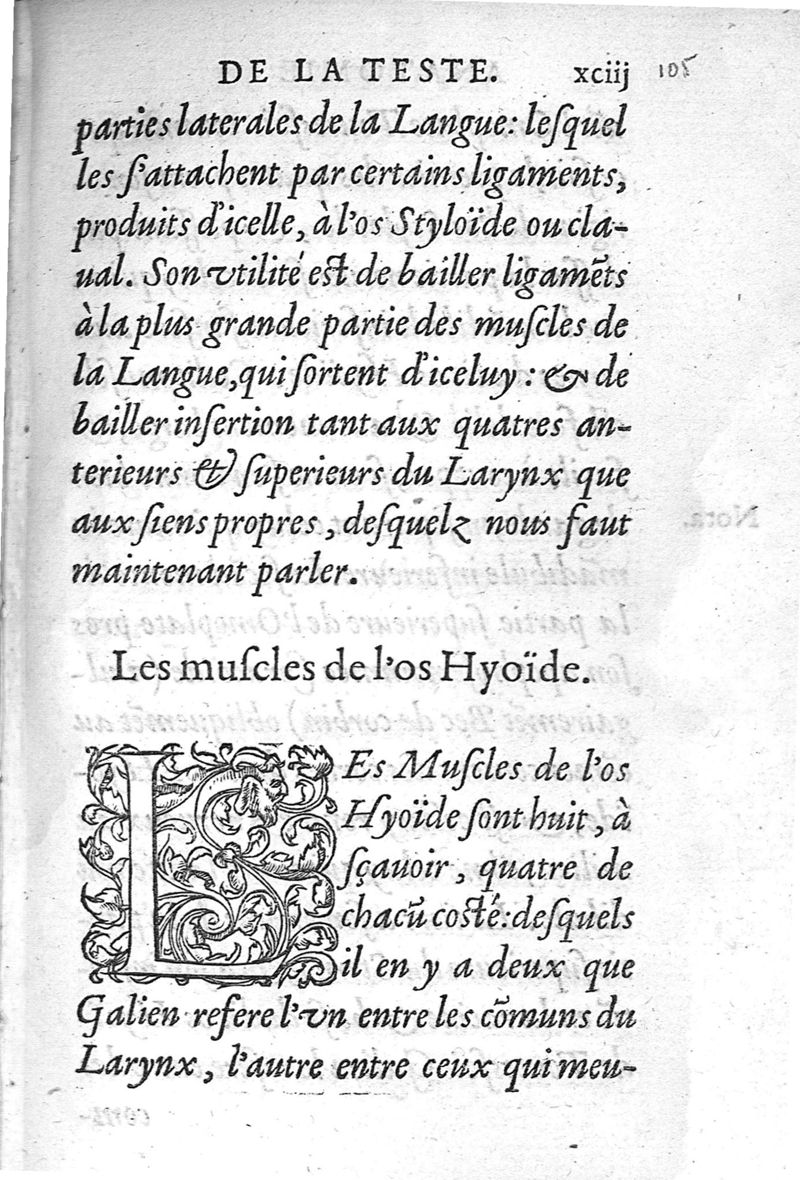 DE LA TESTE. xciij 105
parties laterales de la Langue: leſquel
les ſ'attachent par certains ligaments,
produits d'icelle, à l'os Styloïde ou cla-
ual. Son vtilité eſt de bailler ligamẽts
à la plus grande partie des muſcles de
la Langue, qui ſortent d'iceluy: & de
bailler inſertion tant aux quatres an-
terieurs & ſuperieurs du Larynx que
aux ſiens propres, deſquelz nous faut
maintenant parler.
Les muſcles de l'os Hyoïde.
LEs Muſcles de l'os
Hyoïde ſont huit, à
ſçauoir, quatre de
chacũ coſté: deſquels
il en y a deux que
Galien refere l'vn entre les cõmuns du
Larynx, l'autre entre ceux qui meu-